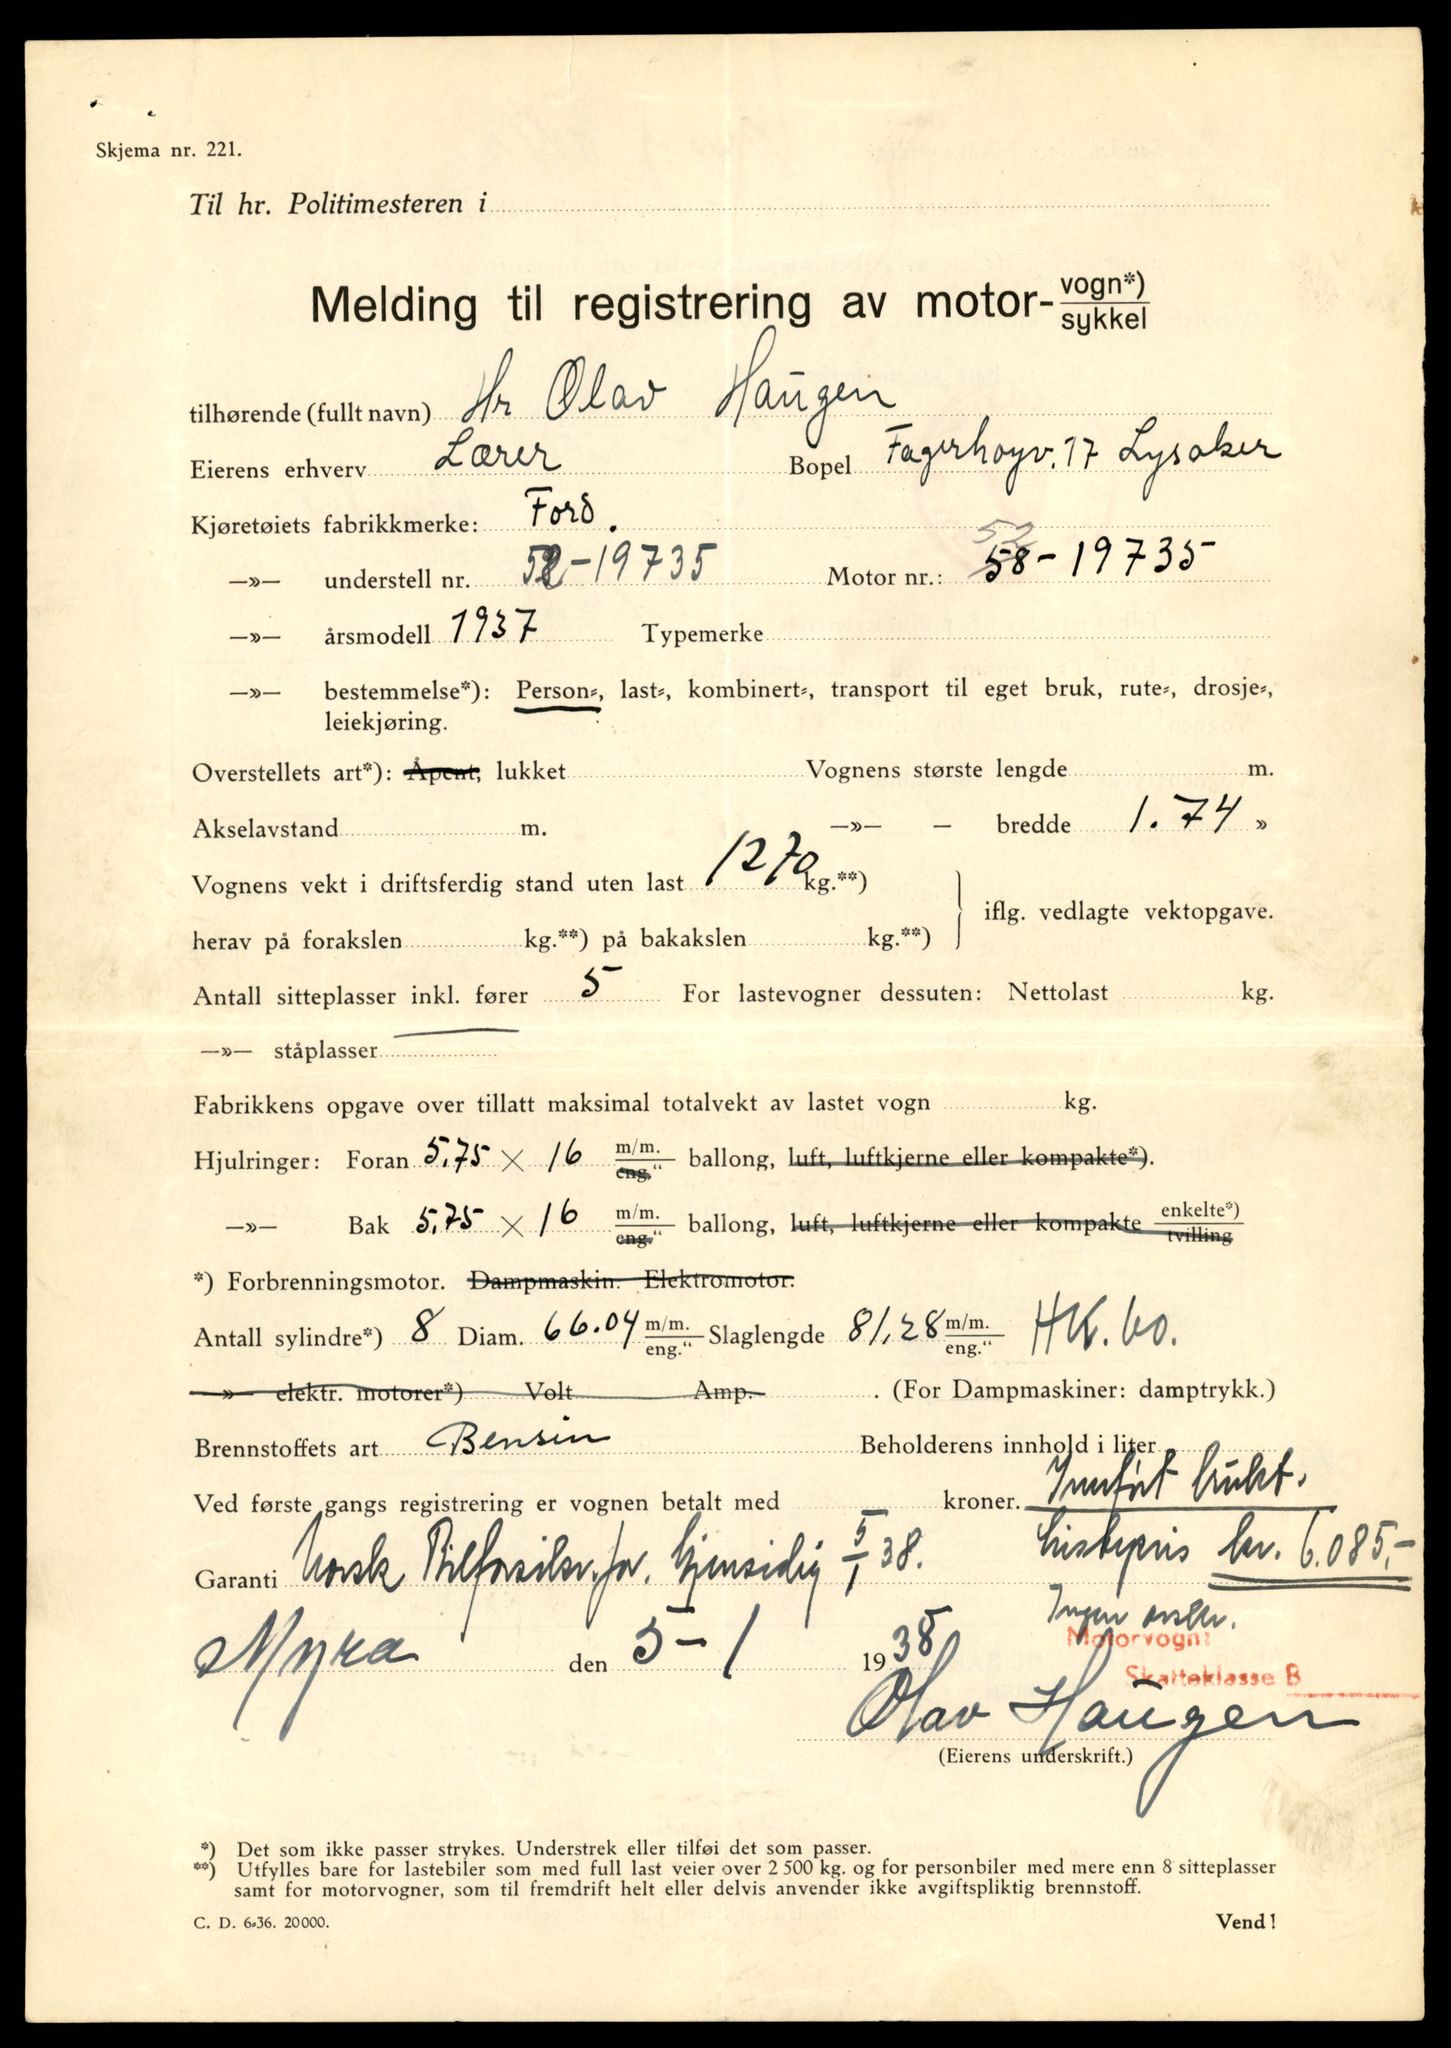 Skjema nr. 221.
Til hr. Politimesteren i
Melding til registrering av motor- vogn*) sykkel
tilhørende (fullt navn) Hr Olav Haugen
Eierens erhverv Lærer Bopel Fagerhøyv. 17 Lysaker
Kjøretøiets fabrikkmerke: Ford.
—»— understell nr. 52-19735 Motor nr.: 52 58-19735
—»— årsmodell 1937 Typemerke
—»— bestemmelse*): Person-, last-, kombinert-, transport til eget bruk, rute-, drosje-,
leiekjøring.
Overstellets art*): Åpent, lukket Vognens største lengde m.
Akselavstand m. —»— — bredde 1.74 »
Vognens vekt i driftsferdig stand uten last 1270 kg.**)
iflg. vedlagte vektopgave.
herav på forakslen kg.**) på bakakslen kg.**)
Antall sitteplasser inkl. fører 5 For lastevogner dessuten: Nettolast kg.
—»— ståplasser
Fabrikkens opgave over tillatt maksimal totalvekt av lastet vogn kg.
Hjulringer: Foran 5.75 × 16 m/m. eng." ballong, luft, luftkjerne eller kompakte*).
—»— Bak 5.75 × 16 m/m. eng." ballong, luft, luftkjerne eller kompakte enkelte*) tvilling
*) Forbrenningsmotor. Dampmaskin. Elektromotor.
Antall sylindre*) 8 Diam. 66.04 m/m. eng." Slaglengde 81,28 m/m. eng." HK. 60.
—»— elektr. motorer*) Volt Amp. . (For Dampmaskiner: damptrykk.)
Brennstoffets art Bensin Beholderens innhold i liter
Ved første gangs registrering er vognen betalt med kroner. Innført brukt.
Listepris kr. 6.085,-
Garanti Norsk Bilforsikr. for. Gjensidig 5/1 38.
Ingen
Motorvogn
Myra den 5-1 1938
Skatteklasse B
Olav Haugen
(Eierens underskrift.)
*) Det som ikke passer strykes. Understrek eller tilføi det som passer.
**) Utfylles bare for lastebiler som med full last veier over 2 500 kg. og for personbiler med mere enn 8 sitteplasser
samt for motorvogner, som til fremdrift helt eller delvis anvender ikke avgiftspliktig brennstoff.
C. D. 6-36. 20000. Vend!